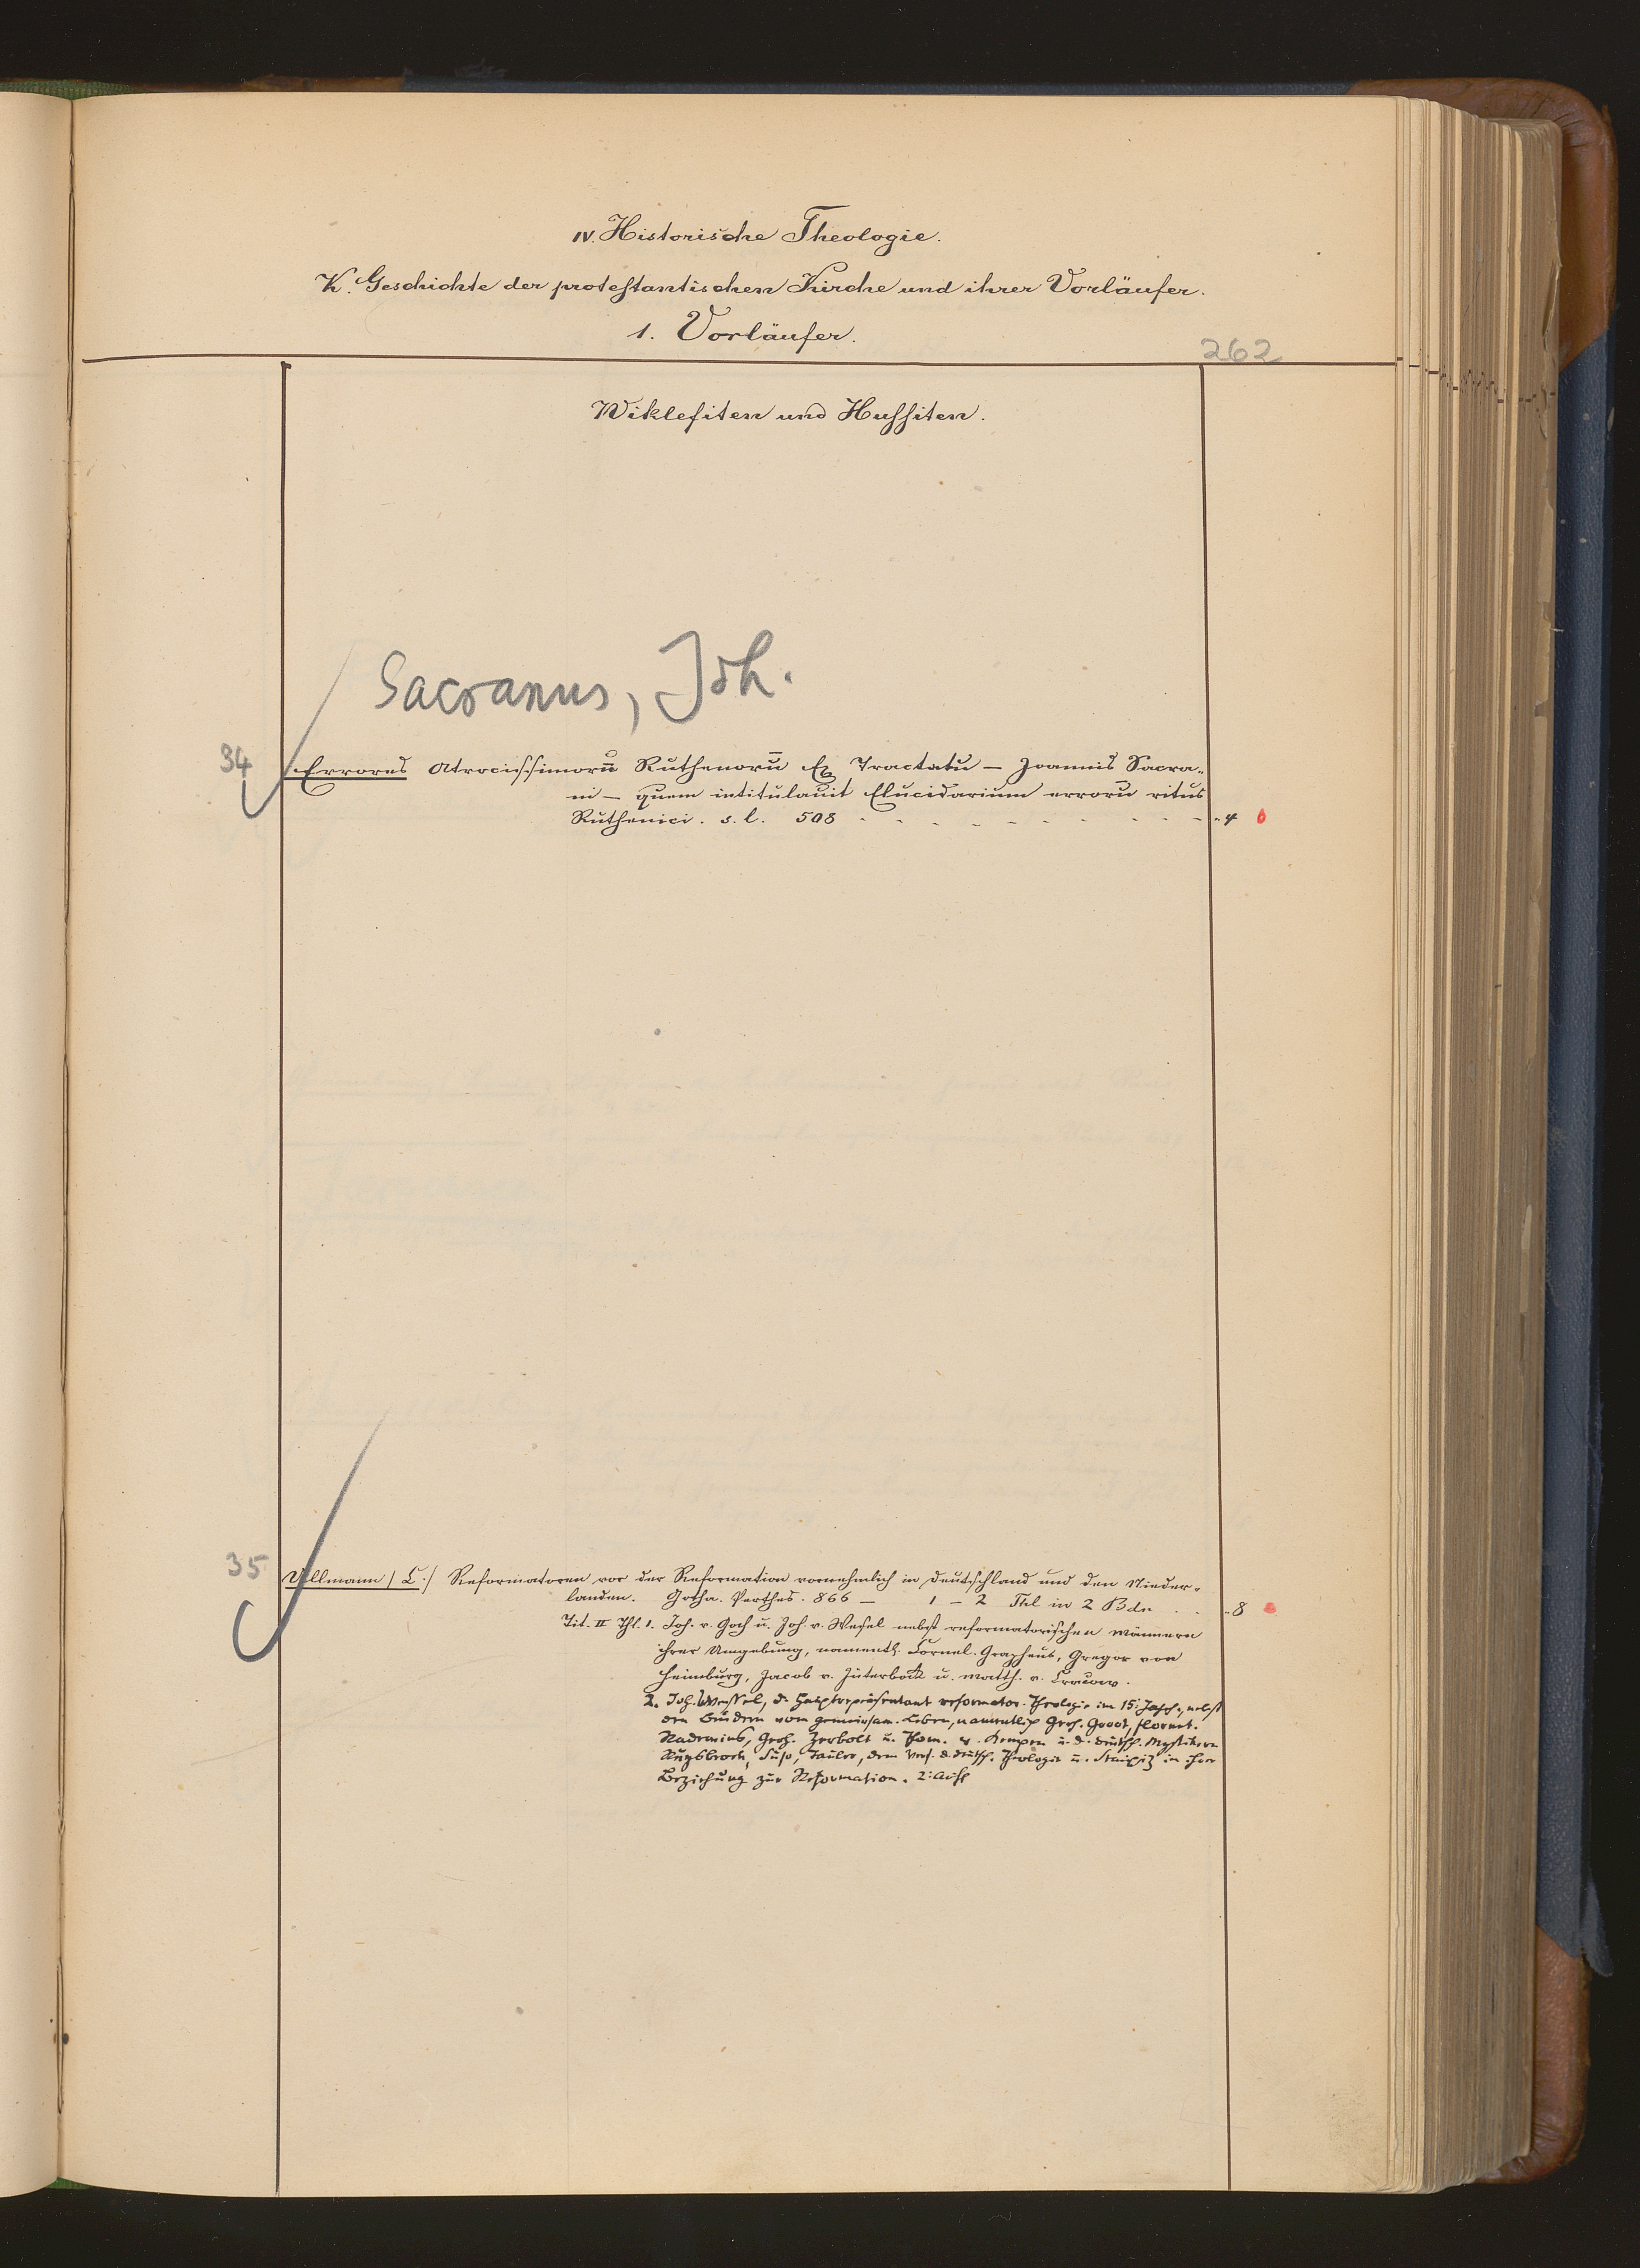 IV. Historische Theologie.
K. Geschichte der protestantischen Kirche und ihrer Vorläufer.
1. Vorläufer.
262
Wiklefiten und Hussiten.
Sacranus, Joh.
34
Errores Atrocissimorū Ruthenorū Ex Tractatu – Joannis Sacra-
ni – quem intitulauit Elucidarium errorū ritus
Ruthenici. s. l. 508 4
35
Ullmann /C./ Reformatoren vor der Reformation vornehmlich in Deutschland und den Nieder-
landen. Gotha. Perthes. 866 – 1 – 2 Thl in 2 Bdn . . 8
Tit. II Thl. 1. Joh. v. Goch u. Joh. v. Wesel nebst reformatorischen Männern
ihrer Umgebung, namentl. Cornel. Grapheus, Gregor von
Heimburg, Jacob v. Jüterbock u. Matth. v. Cracow.
2. Joh. Wessel, d. Hauptrepräsentant reformator. Theologie im 15. Jahrh., nebst
den Brüdern vom gemeinsam. Leben, namentlich Gerh. Groot, Florent.
Radewins, Gerh. Zerbolt u. Thom. v. Kempen u. d. deutsch. Mystikern
Ruysbroek, Suso, Tauler, dem Verf. d. deutsch. Theologie u. Staupitz in ihrer
Beziehung zur Reformation. 2. Aufl